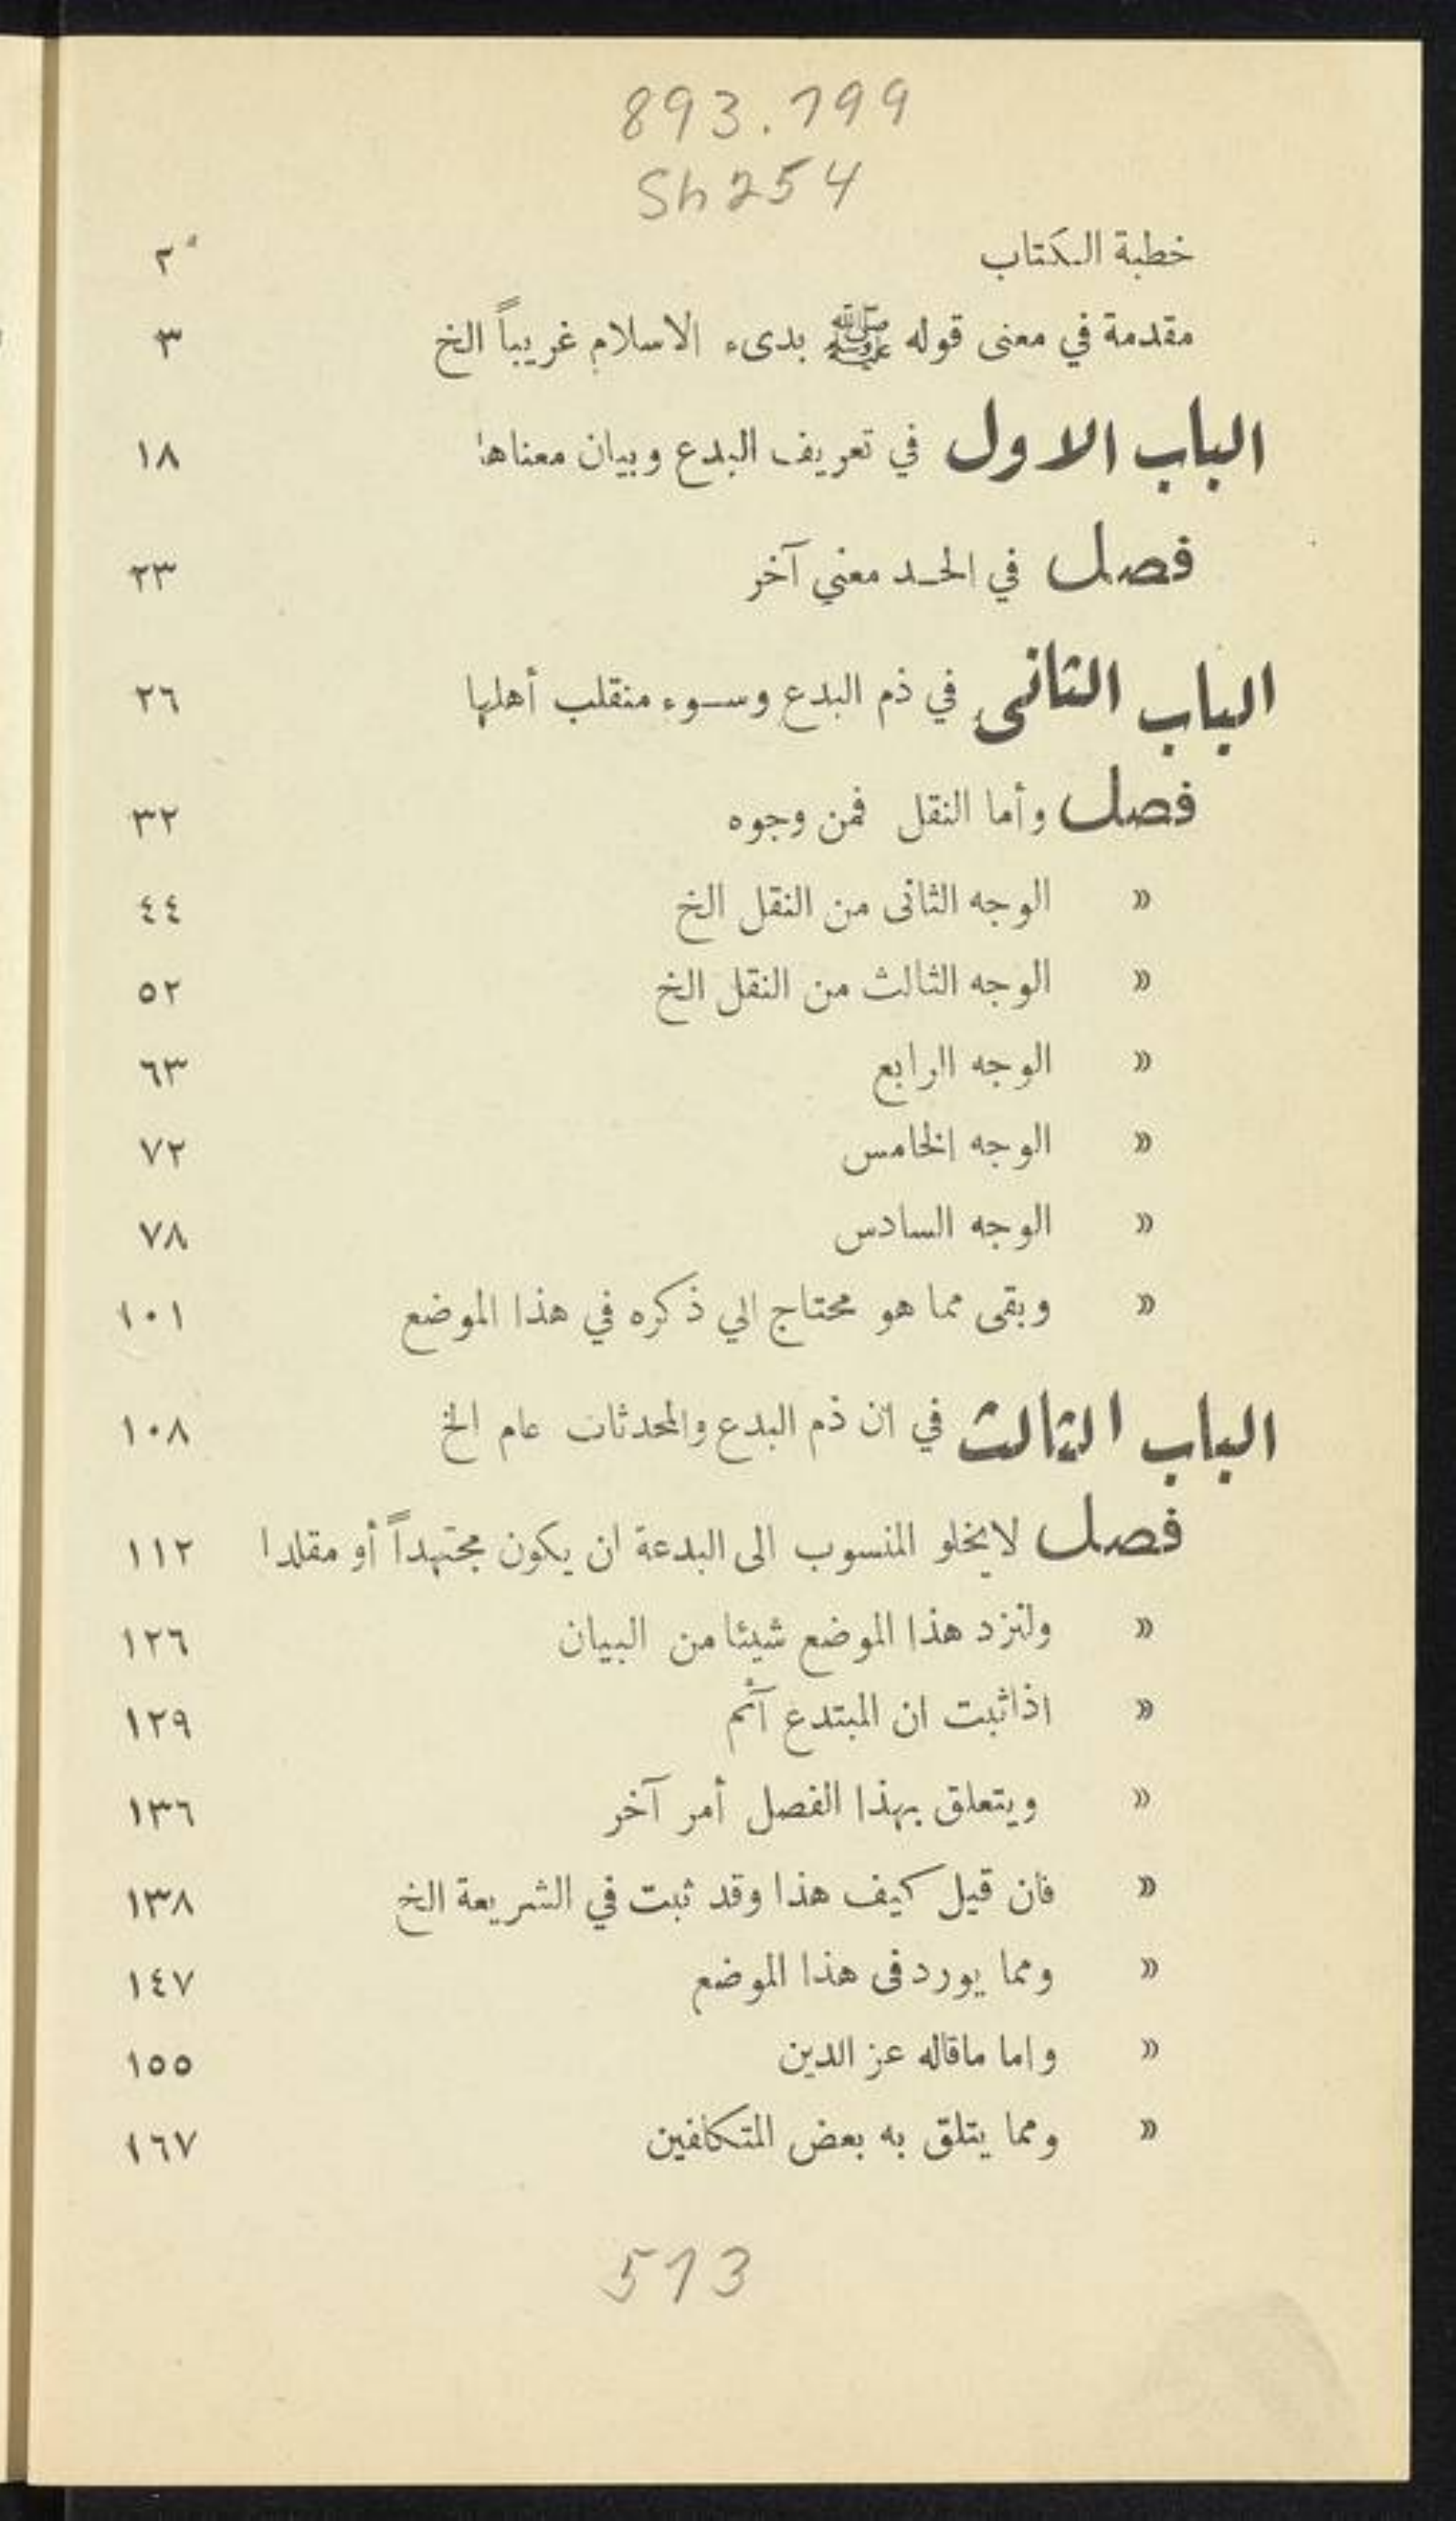 893.799
Sh254
خطبة الكتاب ٢
مقدمة في معنى قوله ﷺ بدىء الاسلام غريباً الخ ٣
الباب الاول في تعريف البدع وبيان معناها ١٨
فصل في الحد معني آخر ٢٣
الباب الثانى في ذم البدع وسوء منقلب أهلها ٢٦
فصل وأما النقل فمن وجوه ٣٢
« الوجه الثانى من النقل الخ ٤٤
« الوجه الثالث من النقل الخ ٥٢
« الوجه الرابع ٦٣
« الوجه الخامس ٧٢
« الوجه السادس ٧٨
« وبقى مما هو محتاج الي ذكره في هذا الموضع ١٠١
الباب الثالث في ان ذم البدع والمحدثات عام الخ ١٠٨
فصل لايخلو المنسوب الى البدعة ان يكون مجتهداً أو مقلدا ١١٢
« ولنزد هذا الموضع شيئا من البيان ١٢٦
« اذاثبت ان المبتدع آثم ١٢٩
« ويتعلق بهذا الفصل أمر آخر ١٣٦
« فان قيل كيف هذا وقد ثبت في الشريعة الخ ١٣٨
« ومما يورد فى هذا الموضع ١٤٧
« واما ماقاله عز الدين ١٥٥
« ومما يتلق به بعض المتكافين ١٦٧
513